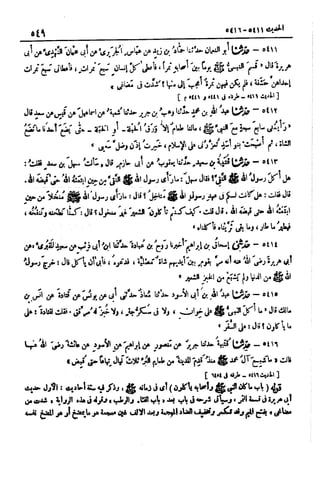 الحديث ٥٤١١ - ٥٤١٦
٥٤٩
٥٤١١ - حدثنا أبو النعمان حدثنا حماد بن زيد عن عباس الجريري عن أبي عثمان النهدي عن أبي
هريرة قال « قسم النبي ﷺ يوما بين أصحابه تمرا ، فأعطى كل إنسان سبع تمرات ، فأعطاني سبع تمرات
إحداهن حشفة ، فلم يكن فيهن تمرة أعجب إلي منها ، شدت في مضاغي »
٥٤١٢ - حدثنا عبد الله بن محمد حدثنا وهب بن جرير حدثنا شعبة عن إسماعيل عن قيس عن سعد قال
« رأيتني سابع سبعة مع النبي ﷺ ، مالنا طعام إلا ورق الحبلة - أو الحبلة - حتى يضع أحدنا ما تضع
الشاة ، ثم أصبحت بنو أسد تعزرني على الإسلام ، خسرت إذن وضل سعيي »
٥٤١٣ - حدثنا قتيبة بن سعيد حدثنا يعقوب عن أبي حازم قال « سألت سهل بن سعد فقلت :
هل أكل رسول الله ﷺ النقي ؟ فقال سهل : ما رأى رسول الله ﷺ النقي من حين ابتعثه الله حتى قبضه الله .
قال فقلت : هل كانت لكم في عهد رسول الله ﷺ مناخل ؟ قال : ما رأى رسول الله ﷺ منخلا من حين
ابتعثه الله حتى قبضه الله . قال قلت : كيف كنتم تأكلون الشعير غير منخول ؟ قال : كنا نطحنه وننفخه ،
فيطير ما طار ، وما بقي ثريناه فأكلناه »
٥٤١٤ - حدثنا إسحاق بن إبراهيم أخبرنا روح بن عبادة حدثنا ابن أبي ذئب عن سعيد المقبري عن
أبي هريرة رضي الله عنه أنه مر بقوم بين أيديهم شاة مصلية ، فدعوه ، فأبى أن يأكل قال : خرج رسول
الله ﷺ من الدنيا ولم يشبع من الخبز الشعير »
٥٤١٥ - حدثنا عبد الله بن أبي الأسود حدثنا معاذ حدثني أبي عن يونس عن قتادة عن أنس بن
مالك قال « ما أكل النبي ﷺ على خوان ، ولا في سكرجة ، ولا خبز له مرقق . فقلت لقتادة : على
ما يأكلون ؟ قال : على السفر »
٥٤١٦ - حدثنا قتيبة حدثنا جرير عن منصور عن إبراهيم عن الأسود عن عائشة رضي الله عنها
قالت « ما شبع آل محمد ﷺ منذ قدم المدينة من طعام البر ثلاث ليال تباعا حتى قبض »
[ الحديث ٥٤١٦ - طرفه في : ٦٤٥٤ ]
قوله ( باب ما كان النبي ﷺ وأصحابه يأكلون ) أي في زمانه ﷺ ، وذكر فيه ستة أحاديث : الأول حديث